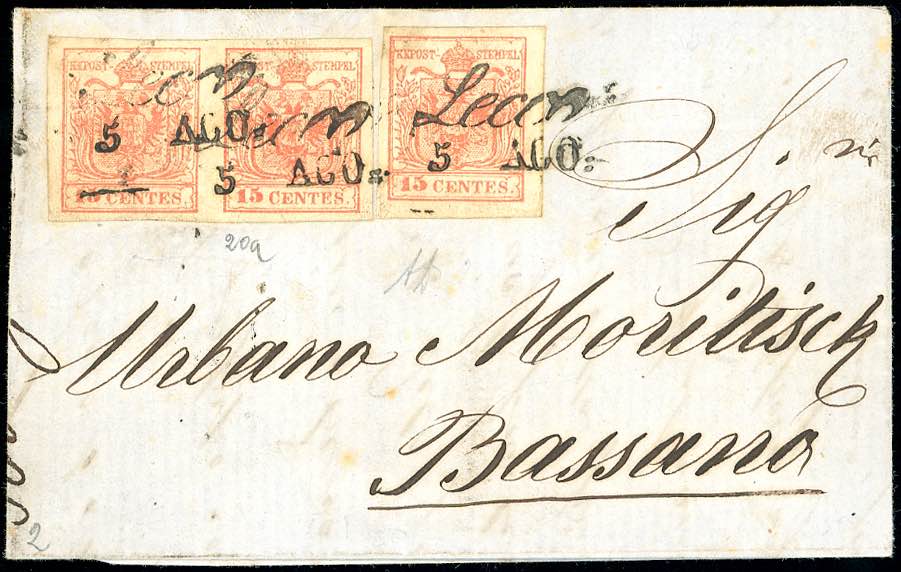 KKPOST-STEMPEL KKPOST-STEMPEL KKPOST-STEMPEL
Lecco Lecco Lecco
5 AGO: 5 AGO: 5 AGO:
15 CENTES. 15 CENTES. 15 CENTES.
20a
Sig
Urbano Moritisck
Bassano
2